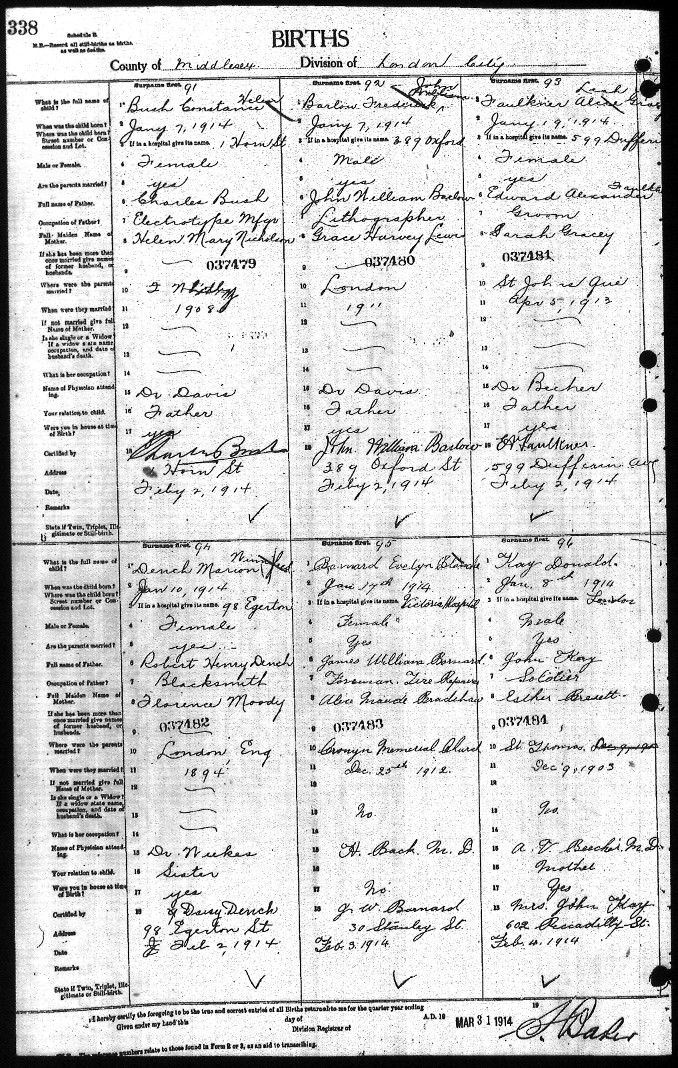 338
Schedule B.
N.B.—Record all still-births as births, as well as deaths.
BIRTHS
County of Middlesex Division of London City
Surname first. 91
Surname first. 92
Surname first. 93
What is the full name of child?
1 Bush Constance Helen
1 Barlow Frederick John William
1 Faulkner Alice Leah Gracey
When was the child born?
2 Jany 7, 1914
2 Jany 7, 1914
2 Jany 19, 1914
Where was the child born? Street number or Concession and Lot.
3 If in a hospital give its name. 1 Horn St
3 If in a hospital give its name. 389 Oxford
3 If in a hospital give its name. 599 Dufferin
Male or Female.
4 Female
4 Male
4 Female
Are the parents married?
5 yes
5 yes
5 yes
Full name of Father.
6 Charles Bush
6 John William Barlow
6 Edward Alexander Faulkner
Occupation of Father?
7 Electrotype Mfgr
7 Lithographer
7 Groom
Full Maiden Name of Mother.
8 Helen Mary Nicholson
8 Grace Harvey Lewis
8 Sarah Gracey
If she has been more than once married give names of former husband, or husbands.
9 037479
9 037480
9 037481
Where were the parents married?
10 Whitby
10 London
10 St Johns Que
When were they married?
11 1908
11 1911
11 Apr 5, 1913
If not married give full Name of Mother.
12
12
12
Is she single or a Widow? If a widow state name, occupation, and date of husband's death.
13
13
13
What is her occupation?
14
14
14
Name of Physician attending.
15 Dr Davis
15 Dr Davis
15 Dr Becher
Your relation to child.
16 Father
16 Father
16 Father
Were you in house at time of Birth?
17 yes
17 yes
17 yes
Certified by
18 Charles Bush
18 John William Barlow
18 E A Faulkner.
Address
Horn St
389 Oxford St
599 Dufferin Ave
Date,
Feby 2, 1914
Feby 2, 1914
Feby 2, 1914
Remarks
State if Twin, Triplet, Illegitimate or Still-birth.
Surname first. 94
Surname first. 95
Surname first. 96
What is the full name of child?
1 Dench Marion Winnifred
1 Barnard Evelyn Blanche
1 Kay Donald.
When was the child born?
2 Jan 10, 1914
2 Jan 17th 1914
2 Jan. 8th 1914
Where was the child born? Street number or Concession and Lot.
3 If in a hospital give its name. 98 Egerton
3 If in a hospital give its name. Victoria Hospital
3 If in a hospital give its name. London
Male or Female.
4 Female
4 Female
4 Male
Are the parents married?
5 yes
5 Yes
5 Yes
Full name of Father.
6 Robert Henry Dench
6 James William Barnard
6 John Kay
Occupation of Father?
7 Blacksmith
7 Foreman.
7 Soldier
Full Maiden Name of Mother.
8 Florence Moody
8 Alice Maude Bradshaw
8 Esther Brasett
If she has been more than once married give names of former husband, or husbands.
9 037482
9 037483
9 037484
Where were the parents married?
10 London, Eng
10 Cronyn Memorial Church
10 St. Thomas,
When were they married?
11 1894
11 Dec. 25th 1912.
11 Dec 9, 1903
If not married give full Name of Mother.
12
12
12
Is she single or a Widow? If a widow state name, occupation, and date of husband's death.
13
13 No.
13 No.
What is her occupation?
14
14
14
Name of Physician attending.
15 Dr. Weekes
15 H. Back M. D.
15 A. V. Becher M.D.
Your relation to child.
16 Sister
16
16 Mother
Were you in house at time of Birth?
17 yes
17 No.
17 Yes
Certified by
18 Daisy Dench
18 J. W. Barnard
18 Mrs. John Kay
Address
98 Egerton St
30 Stanley St.
602 Piccadilly St.
Date
Feb 2, 1914
Feb. 3. 1914
Feb. 4. 1914
Remarks
State if Twin, Triplet, Illegitimate or Still-birth.
I hereby certify the foregoing to be the true and correct entries of all Births returned to me for the quarter year ending 19
Given under my hand this day of A.D. 19 MAR 31 1914
Division Registrar of
S. Baker
N.B. The reference numbers relate to those found in Form 2 or 3, as an aid to transcribing.